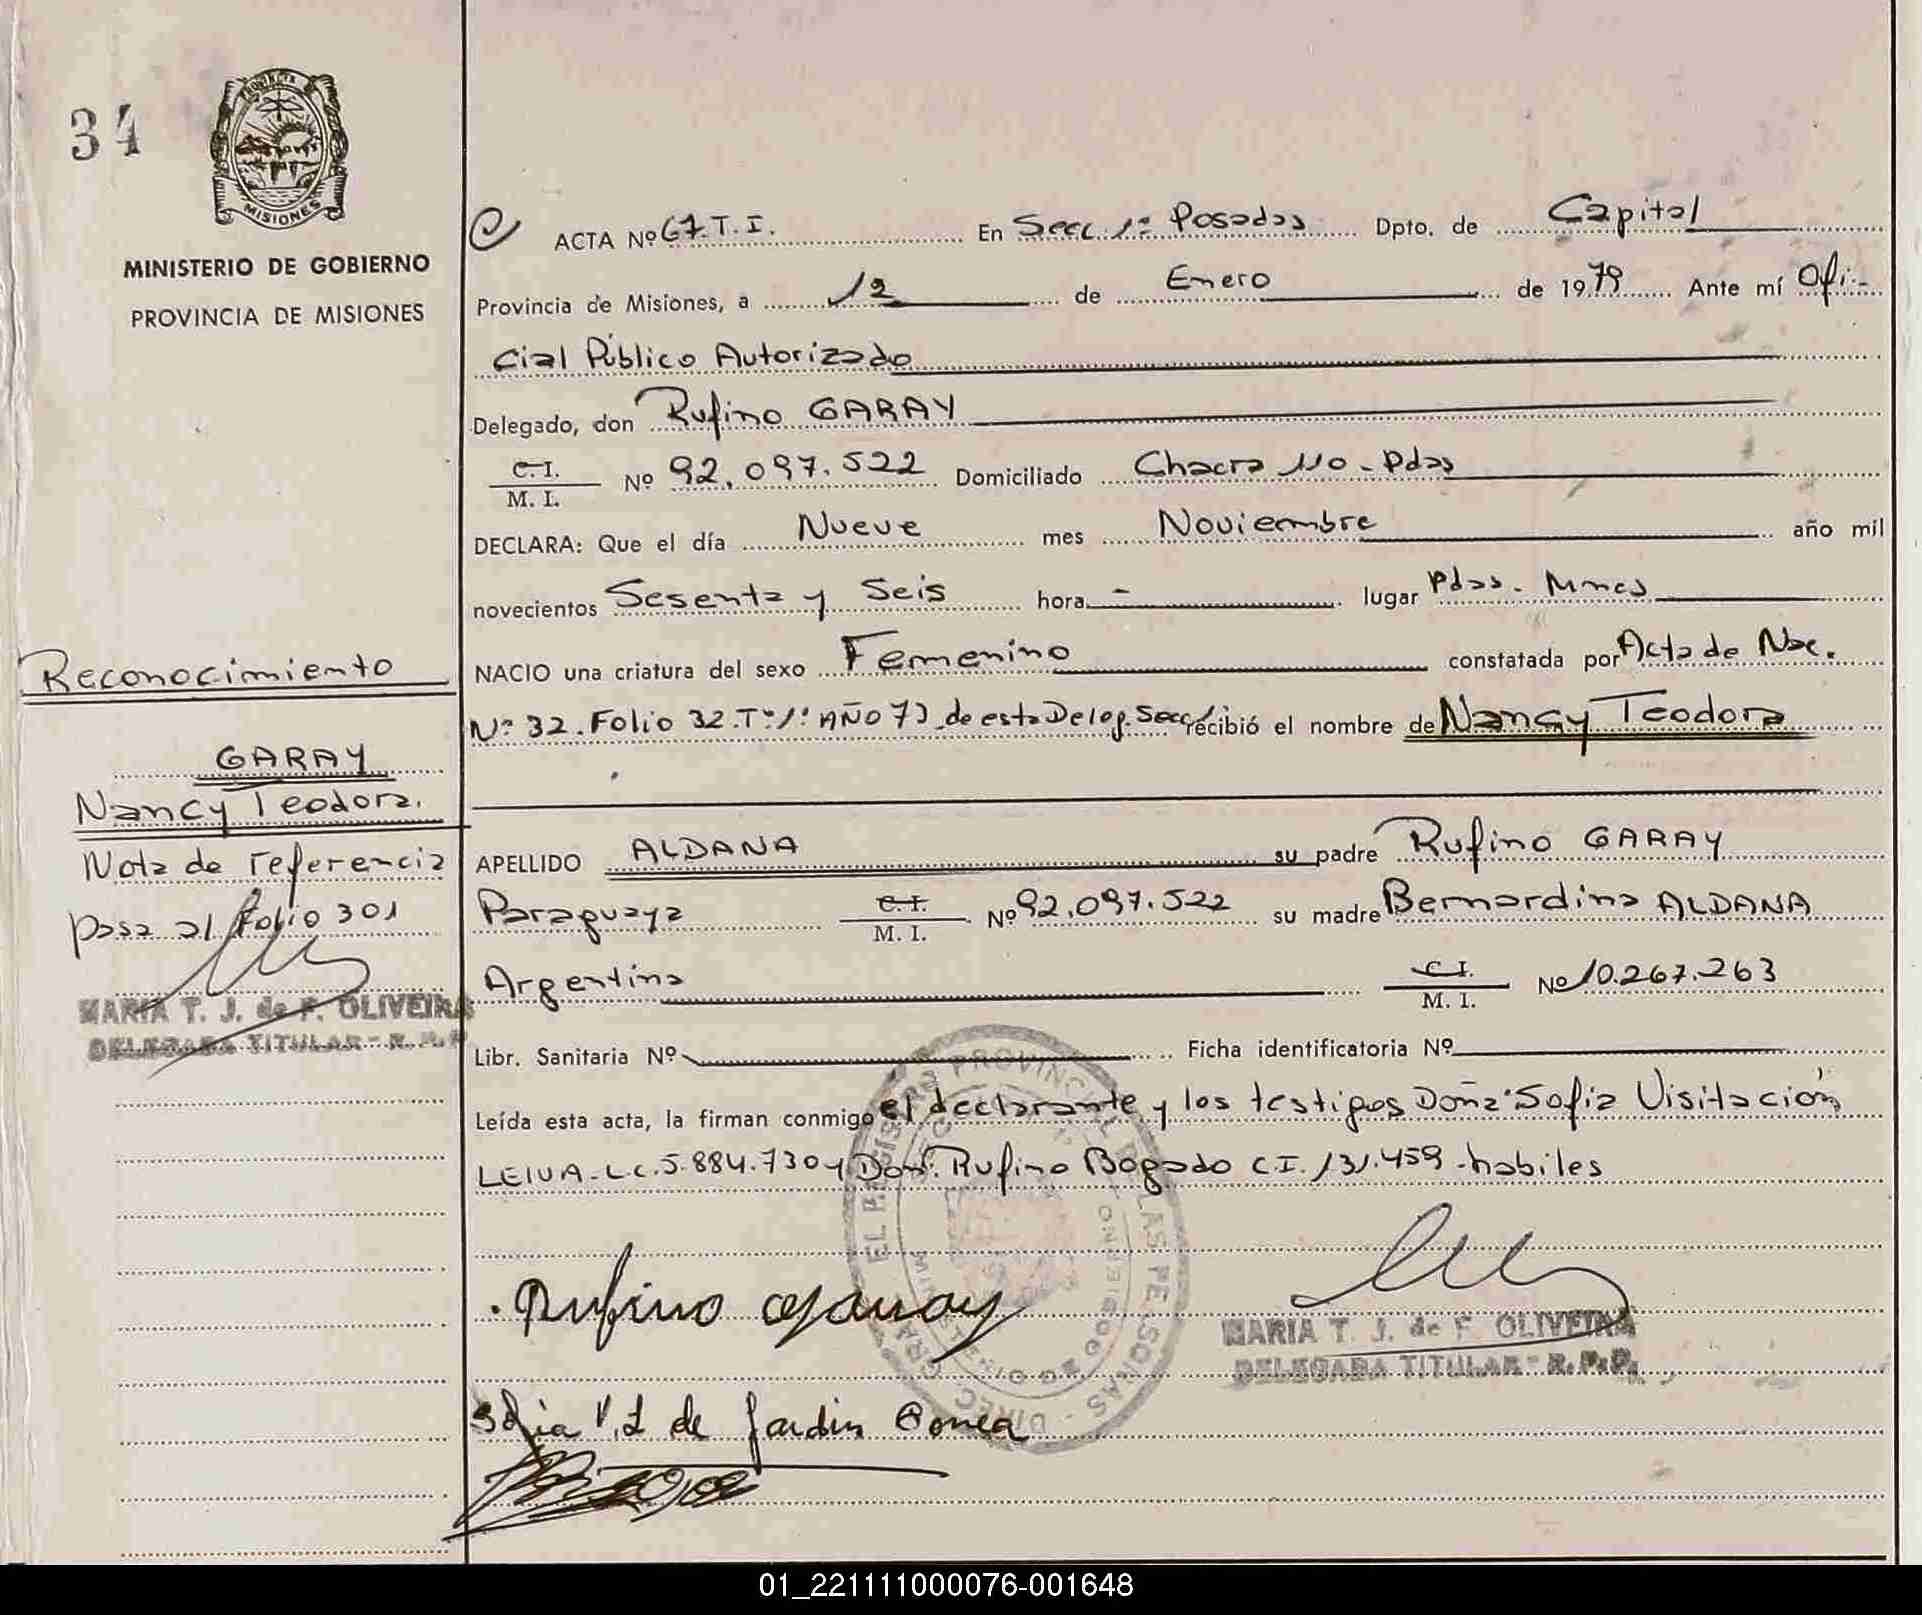 34
PROVINCIA
MISIONES
MINISTERIO DE GOBIERNO
PROVINCIA DE MISIONES
Reconocimiento
GARAY
Nancy Teodora.
Nota de referencia
pasa al Folio 301
MARIA T. J. de F. OLIVEIRA
DELEGADA TITULAR - R. P. P.
ACTA Nº 67.T.I. En Secc. 1ª Posadas Dpto. de Capital
Provincia de Misiones, a 12 de Enero de 1979 Ante mí Ofi-
cial Público Autorizado
Delegado, don Rufino GARAY
C.I.
M. I. Nº 92.097.522 Domiciliado Chacra 110 - Pdas
DECLARA: Que el día Nueve mes Noviembre año mil
novecientos Sesenta y Seis hora - lugar Pdas. Mnes
NACIO una criatura del sexo Femenino constatada por Acta de Nac.
Nº 32. Folio 32. Tº 1º AÑO 73 de esta Deleg. Secc. recibió el nombre de Nancy Teodora
APELLIDO ALDANA su padre Rufino GARAY
Paraguaya C.I. M. I. Nº 92.097.522 su madre Bernardina ALDANA
Argentina C.I. M. I. Nº 10.267.263
Libr. Sanitaria Nº Ficha identificatoria Nº
Leída esta acta, la firman conmigo el declarante y los testigos Doña Sofia Visitación
LEIVA - L.C. 5.884.730 y Don. Rufino Bogado C.I. 131.459 - habiles
Rufino Garay
MARIA T. J. de F. OLIVEIRA
DELEGADA TITULAR - R. P. P.
Sofia V. L de Jardin Correa
01_221111000076-001648